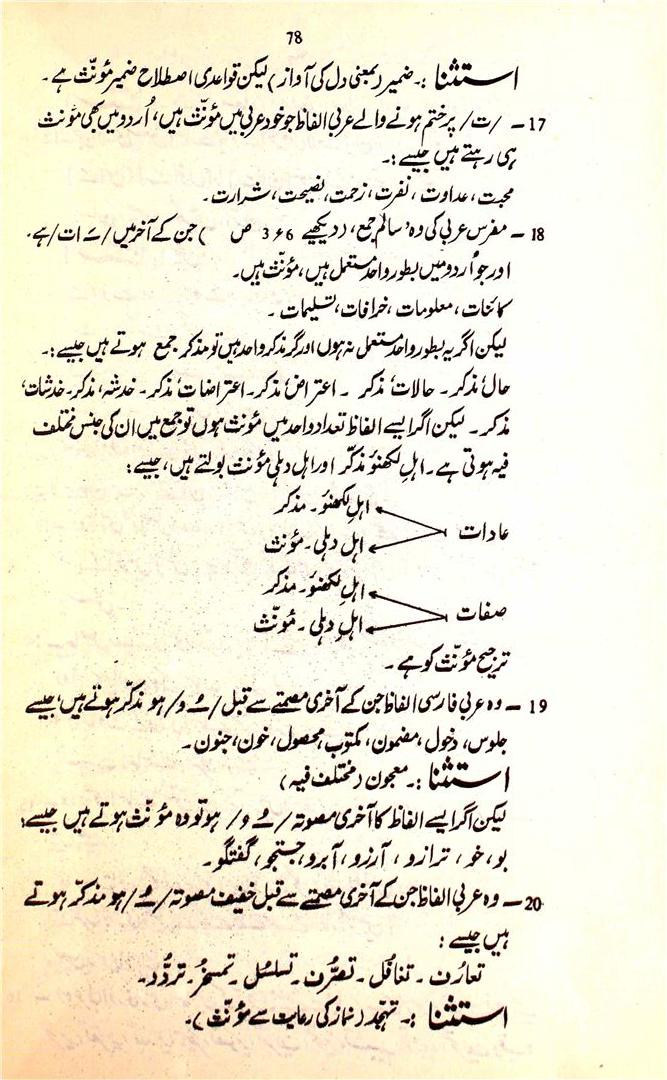 78
استثنا :۔ ضمیر (بمعنی دل کی آواز) لیکن قواعدی اصطلاح ضمیر مؤنّث ہے۔
17 ۔ /ت/ پر ختم ہونے والے عربی الفاظ جو خود عربی میں مؤنّث ہیں، اُردو میں بھی مؤنث
ہی رہتے ہیں جیسے :۔
محبت، عداوت، نفرت، زحمت، نصیحت، شرارت۔
18 ۔ مفرس عربی کی وہ سالم جمع، (دیکھیے 366 ص ) جن کے آخر میں / ـَ ات/ ہے۔
اور جو اُردو میں بطور واحد مستعمل ہیں، مؤنّث ہیں۔
کائنات، معلومات، خرافات، تسلیمات ۔
لیکن اگر یہ بطور واحد مستعمل نہ ہوں اور گر مذکر واحد ہیں تو مذکر جمع ہوتے ہیں جیسے :۔
حال، مذکر۔ حالات، مذکر ۔ اعتراض، مذکر۔ اعتراضات، مذکر۔ خدشہ، مذکر۔ خدشات،
مذکر۔ لیکن اگر ایسے الفاظ تعداد واحد میں مؤنث ہوں تو جمع میں ان کی جنس مختلف
فیہ ہوتی ہے۔ اہلِ لکھنؤ مذکّر اور اہل دہلی مؤنث بولتے ہیں، جیسے :
اہلِ لکھنؤ۔ مذکر
عادات
اہل دہلی۔ مؤنث
اہلِ لکھنؤ۔ مذکر
صفات
اہلِ دہلی۔ مؤنّث
ترجیح مؤنّث کو ہے۔
19 ۔ وہ عربی فارسی الفاظ جن کے آخری مصمتے سے قبل / ـُ و/ ہو مذکّر ہوتے ہیں، جیسے
جلوس، دخول، مضمون، مکتوب، محصول، خون، جنون۔
استثنا :۔ معجون (مختلف فیہ)
لیکن اگر ایسے الفاظ کا آخری مصوتہ / ـُ و/ ہو تو وہ مؤنّث ہوتے ہیں جیسے،
بو، خو، ترازو، آرزو، آبرو، جستجو، گفتگو۔
20 ۔ وہ عربی الفاظ جن کے آخری مصمتے سے قبل خفیف مصوتہ / ـُ / ہو مذکّر ہوتے
ہیں جیسے :
تعارُف۔ تغافُل۔ تصرُّف۔ تسلسُل۔ تمسخُر۔ تردُّد۔
استثنا :۔ تہجّد (نماز کی رعایت سے مؤنّث)۔